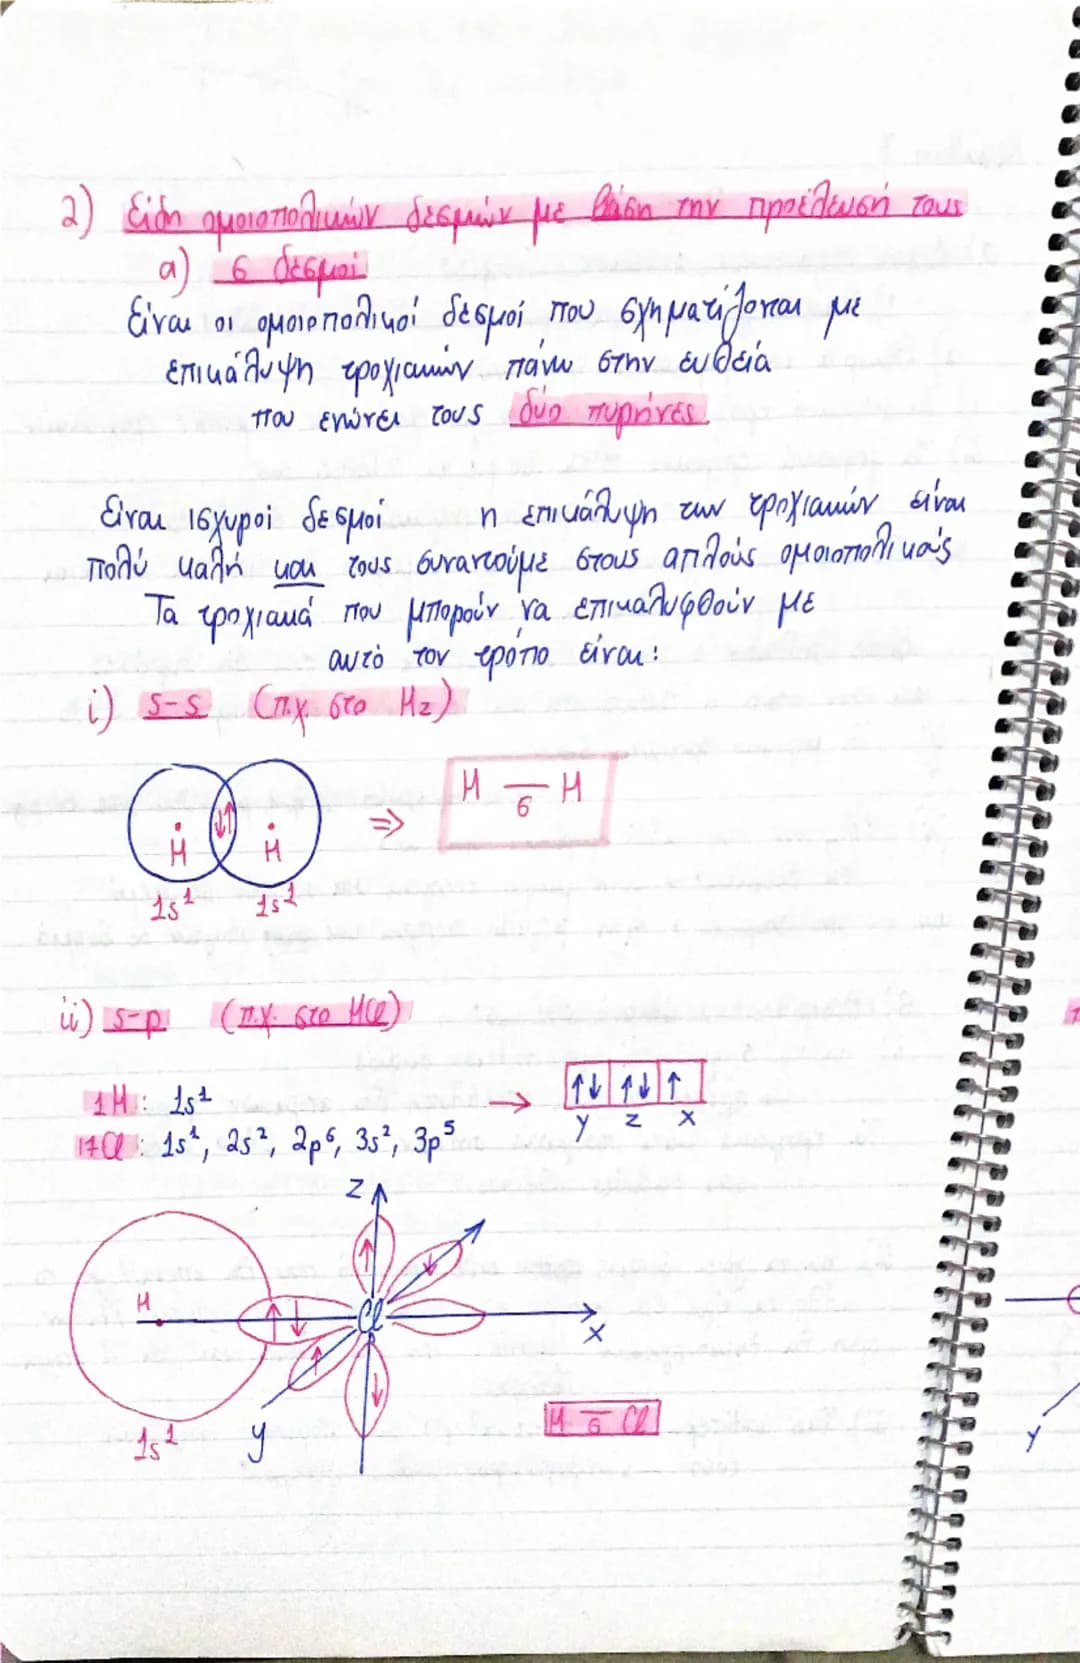 2) Είδη ομοιοπολικών δεσμών με βάση την προέλευσή τους
α) σ δεσμοί
Είναι οι ομοιοπολικοί δεσμοί που σχηματίζονται με
επικάλυψη τροχιακών πάνω στην ευθεία
που ενώνει τους δύο πυρήνες.
Είναι ισχυροί δεσμοί η επικάλυψη των τροχιακών είναι
πολύ καλή και τους συναντούμε στους απλούς ομοιοπολικούς
Τα τροχιακά που μπορούν να επικαλυφθούν με
αυτό τον τρόπο είναι:
i) s-s (π.χ. στο H₂)
↓↑ ⇒ H — H
σ
H H
1s¹ 1s¹
ii) s-p (π.χ. στο HCl)
₁H: 1s¹ → ↑↓ ↑↓ ↑
y z x
₁₇Cl: 1s², 2s², 2p⁶, 3s², 3p⁵
z
↑ ↓
H ↑ ↓ Cl x
↑ ↓
1s¹ y
H — Cl
σ
y